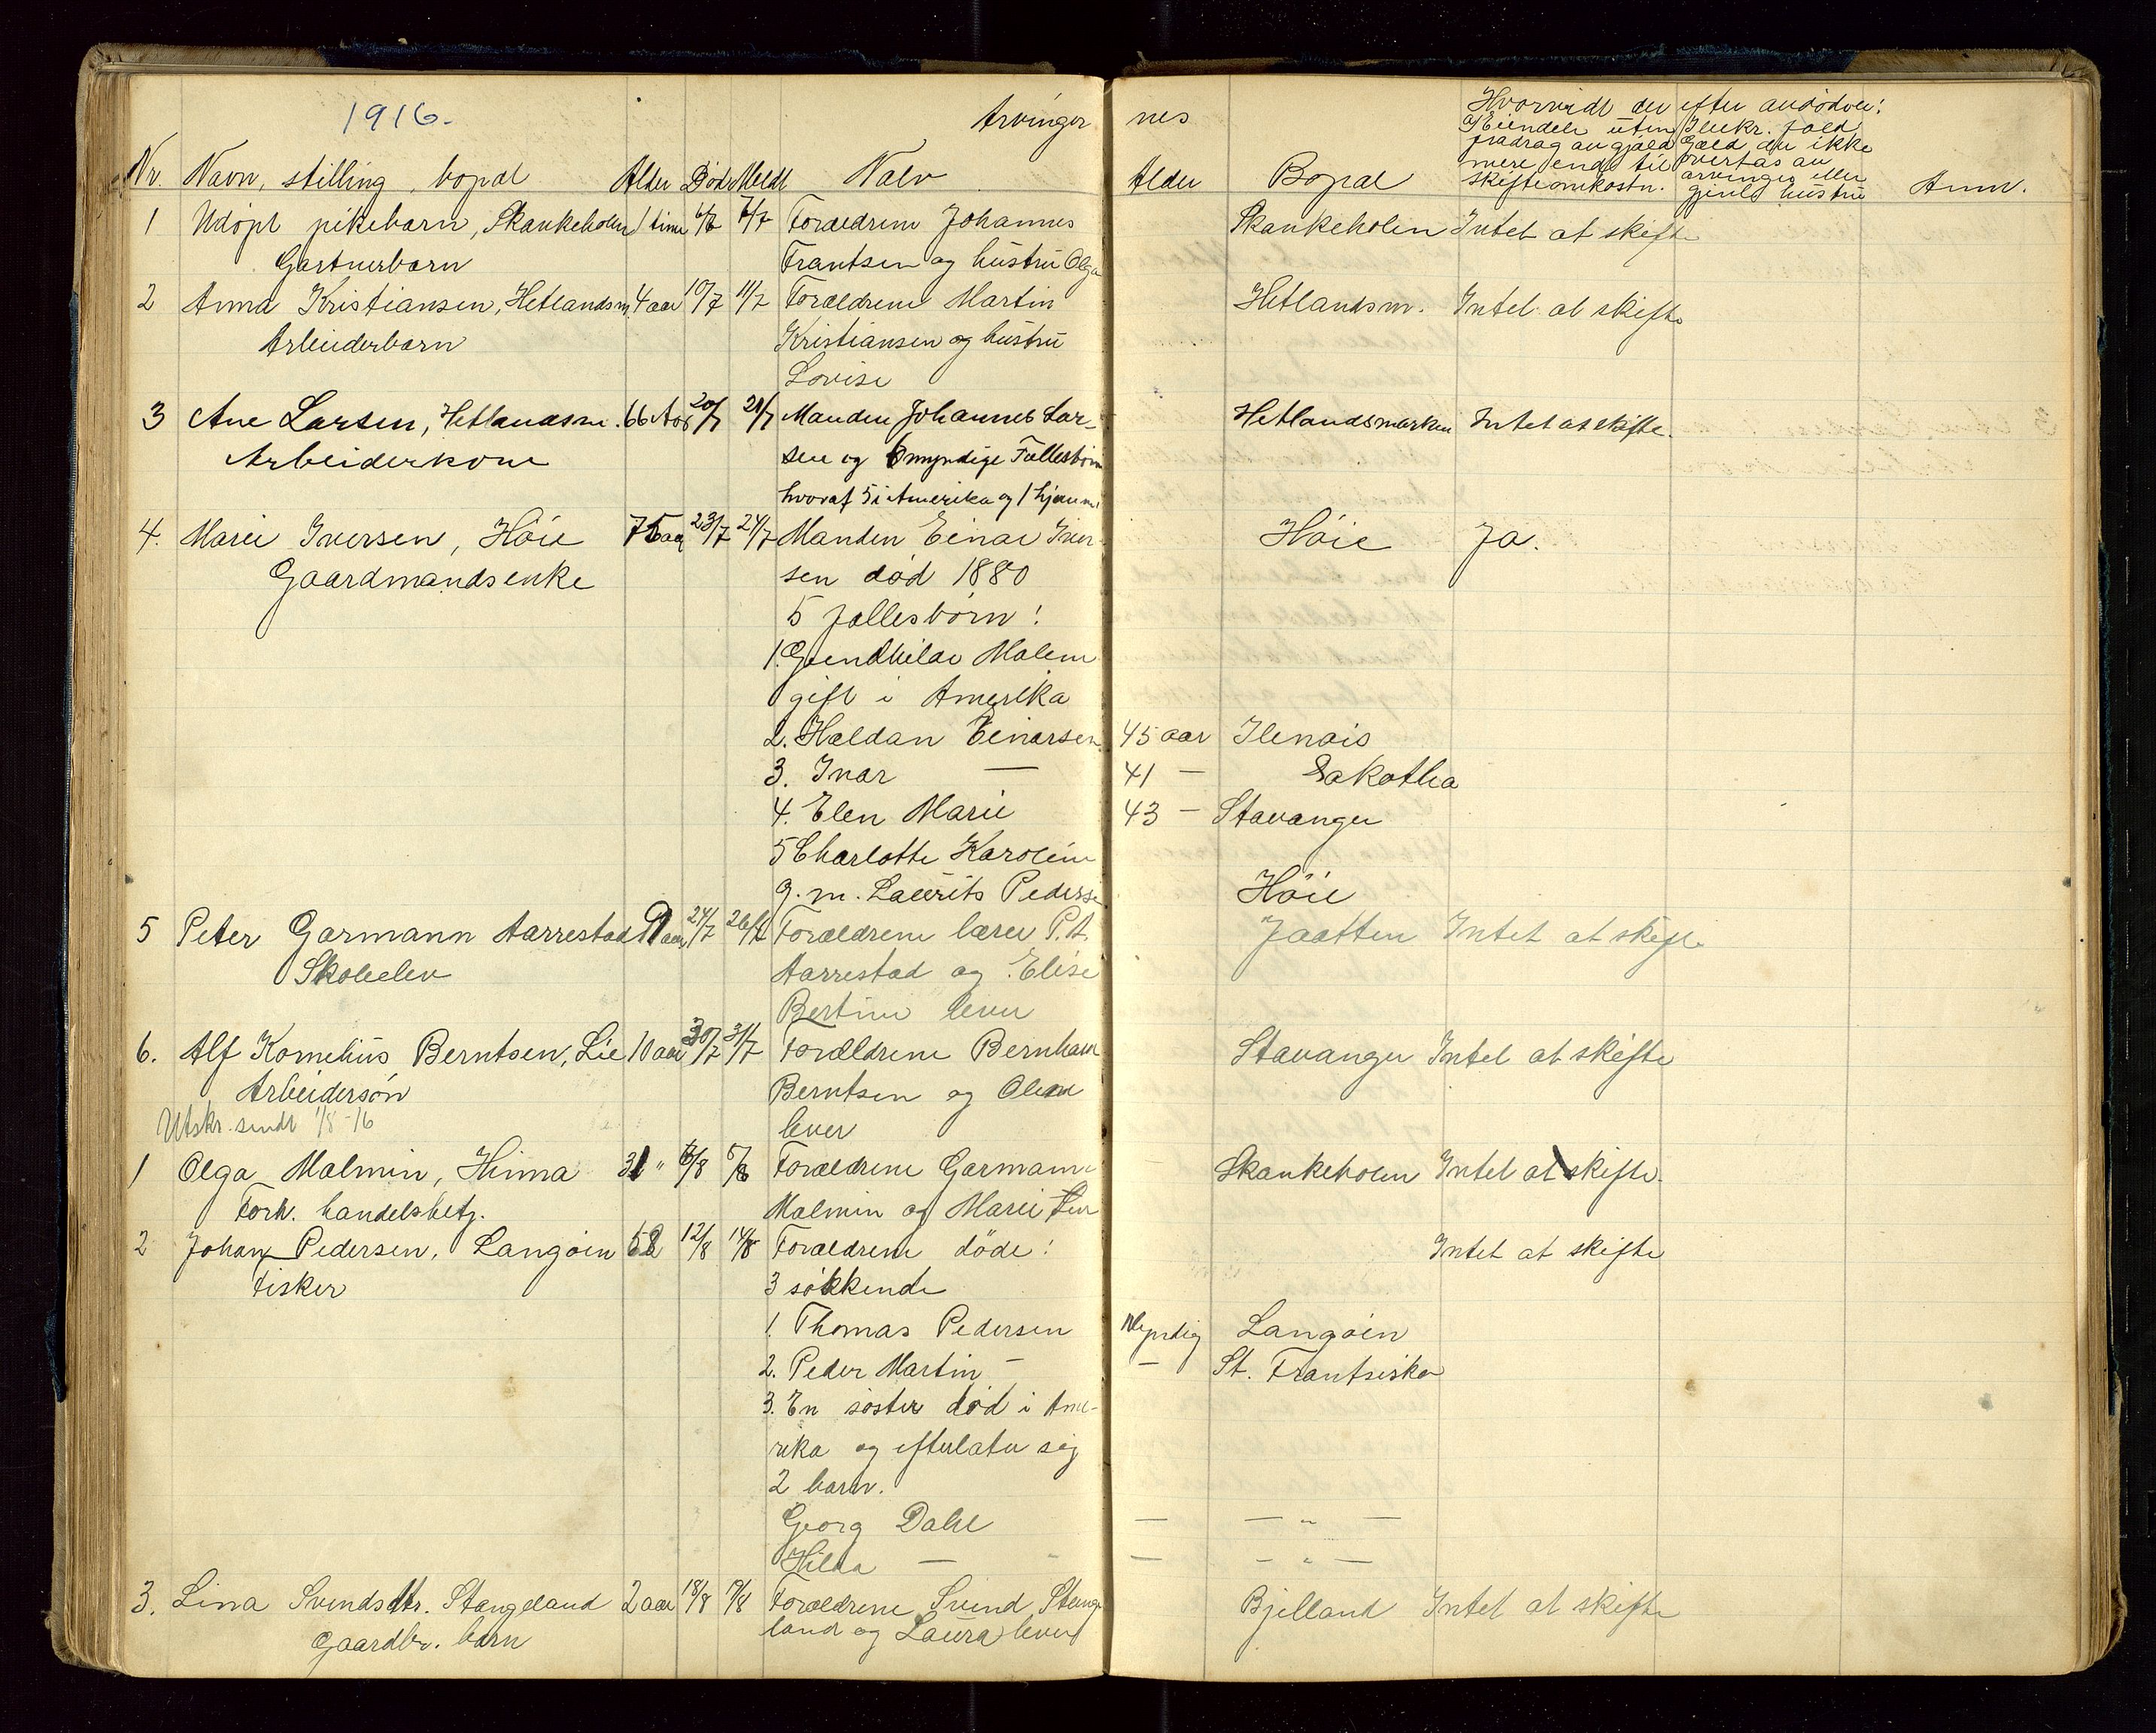 1916.
Arvinger nes
Hvorvidt der efter avdödve:
Eiendele uten fradrag av gjæld mere end til skifteomkostn.
Gæld, der ikke overtas av arvinger eller gjenl. hustru
Nr. Navn, stilling, bopæl Alder Död Meldt Navn Alder Bopæl Anm.
1 Udöpt pikebarn, Skankeholen 1 time 6/7 7/7 Forældrene Johannes Skankeholen Intet at skifte
Gartnerbarn Frantsen og hustru Olga
2 Anna Kristiansen, Hetlandsm. 4 aar 10/7 11/7 Forældrene Martin Hetlandsm. Intet at skifte
Arbeiderbarn Kristiansen og hustru
Lovise
3 Ane Larsen, Hetlandsm. 66 Aar 20/7 21/7 Manden Johannes Lar- Hetlandsmarken Intet at skifte.
Arbeiderkone sen og 6 myndige Fællesbörn
hvoraf 5 i Amerika og 1 hjemme
4. Marie Iversen, Höie 75 aar 23/7 24/7 Manden Einar Iver- Höie Ja.
Gaardmandsenke sen död 1880
5 fællesbörn:
1. Malene
gift i Amerika
2. Haldan Einarsen 45 aar Ilenois
3. Ivar — 41 — Dakotha
4. Elen Marie 43 — Stavanger
5 Charlotte Karoline
g. m. Laurits Pederse Höie
5 Peter Garmann Aarrestad 11 aar 24/7 26/7 Forældrene lærer P. A. Jaatten Intet at skifte
Skoleelev Aarrestad og Elise
Bertine lever
6. Alf Kornelius Berntsen, Lie 10 aar 30/7 31/7 Forældrene Bernhard Stavanger Intet at skifte
Arbeidersön Berntsen og Olene
Utskr. sendt 1/8-16 lever
1 Olga Malmin, Hinna 31 " 6/8 7/8 Forældrene Garmann Skankeholen Intet at skifte.
Forh. handelsbetj. Malmin og Marie
2 Johan Pedersen, Langöien 52 12/8 14/8 Forældrene döde: Intet at skifte
Fisker 3 söskende
1. Thomas Pedersen Myndig Langöien
2. Peder Martin — — St. Frantsisko
3. En söster död i Ame-
rika og efterlater sig
2 barn.
Georg Dahl — — " —
Hilda — — — " —
3. Lina Svendsdtr. Stangeland 2 aar 18/8 19/8 Forældrene Svend Stange- Bjelland Intet at skifte
Gaardbr. barn land og Laura lever